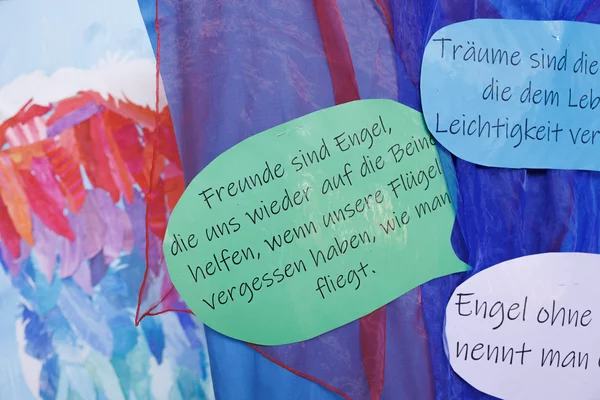 Freunde sind Engel,
die uns wieder auf die Beine
helfen, wenn unsere Flügel
vergessen haben, wie man
fliegt.
Träume sind die
die dem Leb
Leichtigkeit ver
Engel ohne
nennt man